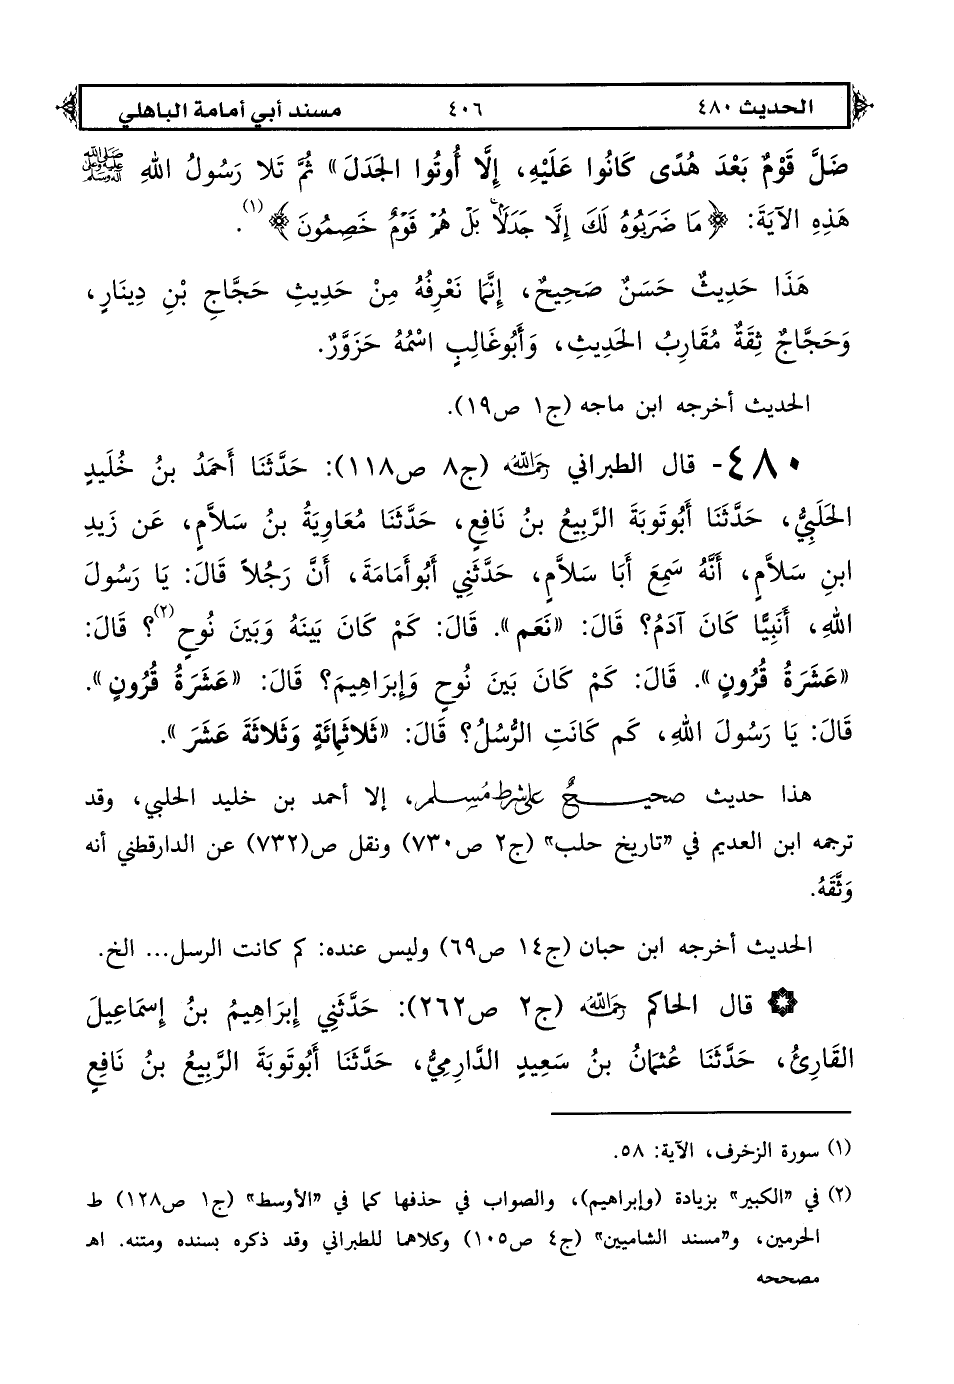 الحديث ٤٨٠ ٤٠٦ مسند أبي أمامة الباهلي
ضَلَّ قَوْمٌ بَعْدَ هُدًى كَانُوا عَلَيْهِ، إِلَّا أُوتُوا الجَدَلَ» ثُمَّ تَلا رَسُولُ اللهِ ﷺ
هَذِهِ الآيَةَ: ﴿مَا ضَرَبُوهُ لَكَ إِلَّا جَدَلًا بَلْ هُمْ قَوْمٌ خَصِمُونَ﴾(١).
هَذَا حَدِيثٌ حَسَنٌ صَحِيحٌ، إِنَّمَا نَعْرِفُهُ مِنْ حَدِيثِ حَجَّاجِ بْنِ دِينَارٍ،
وَحَجَّاجٌ ثِقَةٌ مُقَارِبُ الحَدِيثِ، وَأَبُوغَالِبٍ اسْمُهُ حَزَوَّرٌ.
الحديث أخرجه ابن ماجه (ج١ ص١٩).
٤٨٠- قال الطبراني رحمه الله (ج٨ ص١١٨): حَدَّثَنَا أَحمَدُ بنُ خُلَيدٍ
الحَلَبِيُّ، حَدَّثَنَا أَبُوتَوبَةَ الرَّبِيعُ بنُ نَافِعٍ، حَدَّثَنَا مُعَاوِيَةُ بنُ سَلاَّمٍ، عَن زَيدِ
ابنِ سَلاَّمٍ، أَنَّهُ سَمِعَ أَبَا سَلاَّمٍ، حَدَّثَنِي أَبُوأُمَامَةَ، أَنَّ رَجُلاً قَالَ: يَا رَسُولَ
اللهِ، أَنَبِيًّا كَانَ آدَمُ؟ قَالَ: «نَعَم». قَالَ: كَمْ كَانَ بَينَهُ وَبَينَ نُوحٍ(٢)؟ قَالَ:
«عَشَرَةُ قُرُونٍ». قَالَ: كَمْ كَانَ بَينَ نُوحٍ وَإِبرَاهِيمَ؟ قَالَ: «عَشَرَةُ قُرُونٍ».
قَالَ: يَا رَسُولَ اللهِ، كَم كَانَتِ الرُّسُلُ؟ قَالَ: «ثَلاثَمِائَةٍ وَثَلاثَةَ عَشَرَ».
هذا حديث صحيحٌ على شرط مُسلم، إلا أحمد بن خليد الحلبي، وقد
ترجمه ابن العديم في "تاريخ حلب" (ج٢ ص٧٣٠) ونقل ص(٧٣٢) عن الدارقطني أنه
وَثَّقَهُ.
الحديث أخرجه ابن حبان (ج١٤ ص٦٩) وليس عنده: كم كانت الرسل... الخ.
قال الحاكم رحمه الله (ج٢ ص٢٦٢): حَدَّثَنِي إِبرَاهِيمُ بنُ إِسمَاعِيلَ
القَارِئُ، حَدَّثَنَا عُثمَانُ بنُ سَعِيدٍ الدَّارِمِيُّ، حَدَّثَنَا أَبُوتَوبَةَ الرَّبِيعُ بنُ نَافِعٍ
(١) سورة الزخرف، الآية: ٥٨.
(٢) في "الكبير" بزيادة (وإبراهيم)، والصواب في حذفها كما في "الأوسط" (ج١ ص١٢٨) ط
الحرمين، و"مسند الشاميين" (ج٤ ص١٠٥) وكلاهما للطبراني وقد ذكره بسنده ومتنه. اهـ
مصححه